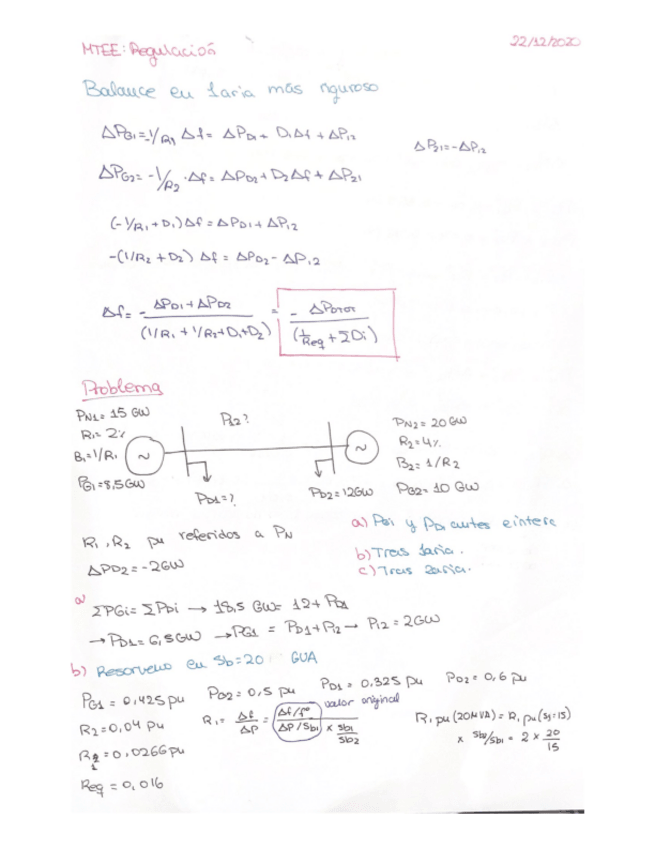 MTEE: Regulación
22/12/2020
Balance en 1aria más riguroso
ΔPG1=-1/R1 Δf = ΔPD1 + D1Δf + ΔP12
ΔP21=-ΔP12
ΔPG2= -1/R2 ·Δf = ΔPD2 + D2Δf + ΔP21
(-1/R1 + D1)Δf = ΔPD1 + ΔP12
-(1/R2 + D2) Δf = ΔPD2 - ΔP12
Δf = - ΔPD1 + ΔPD2 / (1/R1 + 1/R2 + D1 + D2) = - ΔPDTOT / (1/Req + ΣDi)
Problema
PN1 = 15 GW
R1= 2%
B1=1/R1
PG1=8,5GW
P12?
PD1=?
PD2=12GW
PN2 = 20 GW
R2=4%
B2= 1/R2
PG2= 10 GW
R1, R2 pu referidos a PN
ΔPD2 = -2GW
a) P01 y PD1 antes e interc
b) Tras 1aria.
c) Tras 2aria.
a) ΣPGi = ΣPDi → 18,5 GW = 12 + PD1
→ PD1= 6,5GW → PG1 = PD1 + P12 → P12 = 2GW
b) Resolvemo en Sb=20 GVA
PG1 = 0,425 pu PG2 = 0,5 pu PD1 = 0,325 pu PD2 = 0,6 pu
R2=0,04 pu
R1 = Δf / ΔP = Δf/fº / ΔP/Sb1 × Sb1/Sb2
valor original
R1 pu (20MVA) = R1 pu (Sb=15)
× Sb2/Sb1 = 2 × 20/15
R1 = 0,0266 pu
Req = 0,016